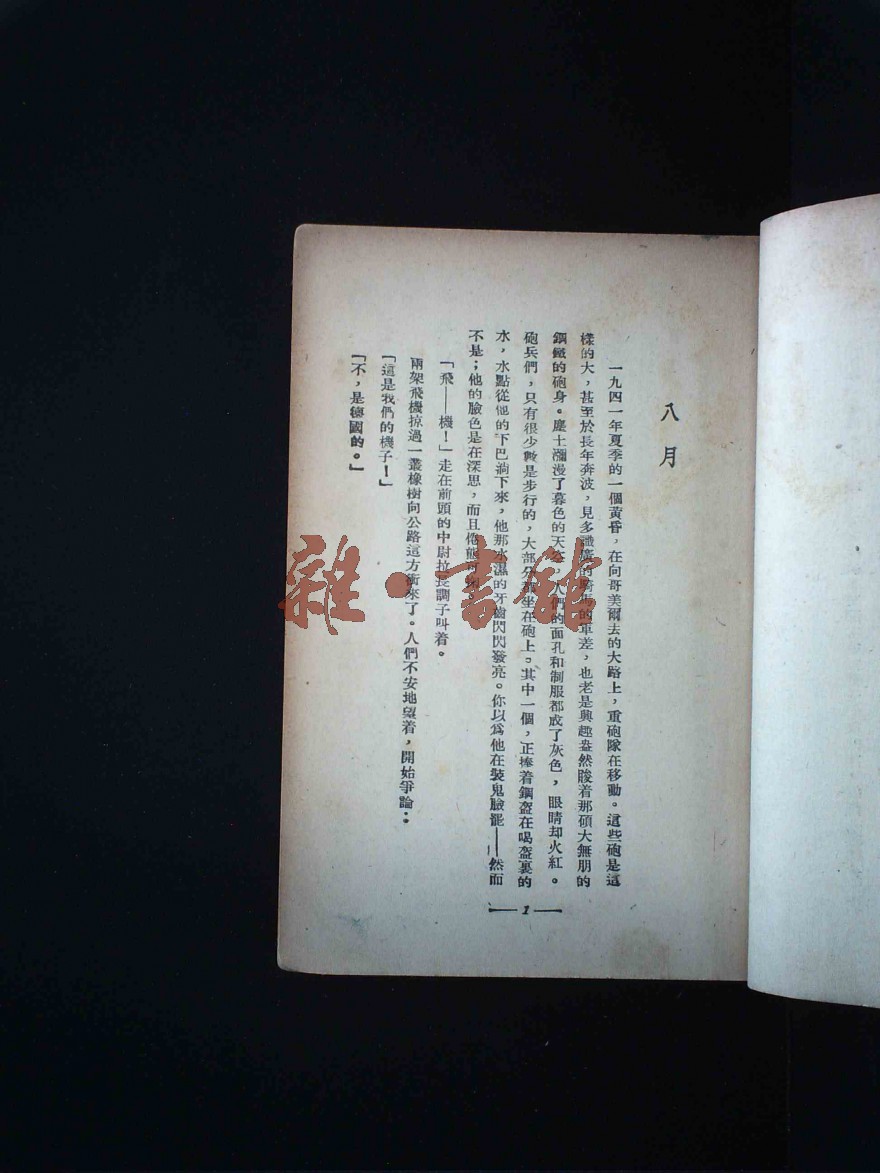 八月
一九四一年夏季的一個黃昏，在向哥美爾去的大路上，重砲隊在移動。這些砲是這
樣的大，甚至於長年奔波，見多識廣的騎馬的軍差，也老是興趣盎然睃着那碩大無朋的
鋼鐵的砲身。塵土瀰漫了暮色的天空，人們的面孔和制服都成了灰色，眼睛却火紅。
砲兵們，只有很少數是步行的，大部分坐在砲上。其中一個，正捧着鋼盔在喝盔裏的
水，水點從他的下巴淌下來，他那水濕的牙齒閃閃發亮。你以爲他在裝鬼臉罷——然而
不是；他的臉色是在深思，而且倦態
「飛——機！」走在前頭的中尉拉長調子叫着。
兩架飛機掠過一叢橡樹向公路這方衝來了。人們不安地望着，開始爭論：
「這是我們的機子！」
「不，是德國的。」
1
雜·書館